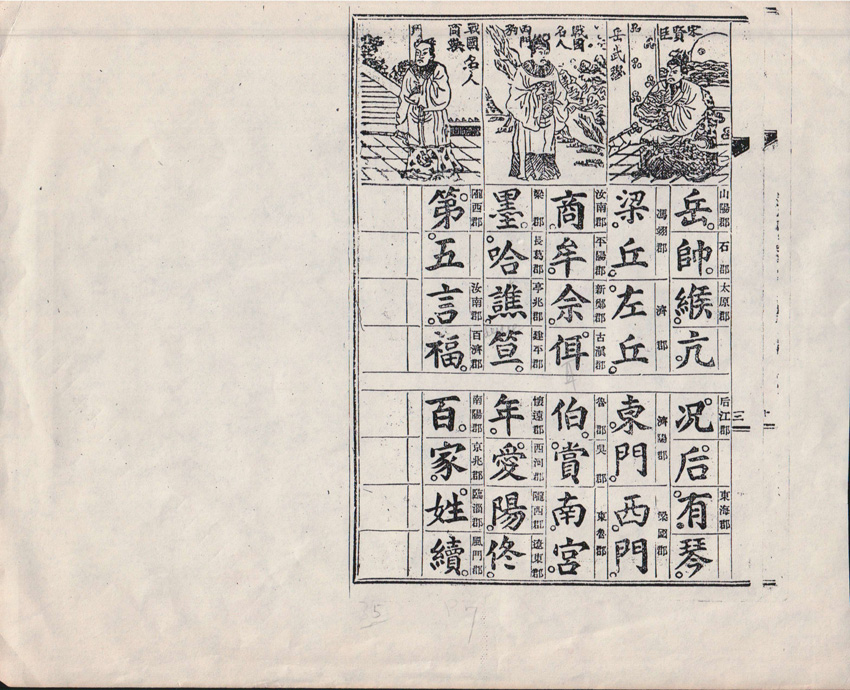 宋賢臣
岳武穆
戰國
名人
西門豹
戰國名人
商鞅
山陽郡 石郡 太原郡
岳帥緱亢
后江郡 東海郡
况后有琴
馮翊郡 濟郡
梁丘左丘
濟陽郡 梁國郡
東門西門
汝南郡 平陽郡 新鄭郡 古滇郡
商牟佘佴
魯郡 吳郡 東魯郡
伯賞南宮
梁郡 長葛郡 亭兆郡 建平郡
墨哈譙笪
懷遠郡 西河郡 隴西郡 遼東郡
年愛陽佟
隴西郡 汝南郡 百濟郡
第五言福
南陽郡 京兆郡 臨淄郡 風門郡
百家姓續
三
35
7